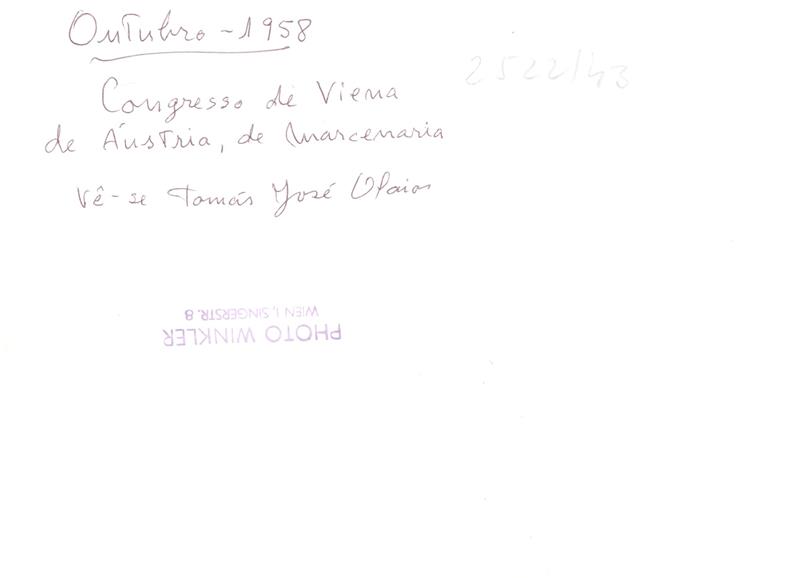 Outubro - 1958
2522/43
Congresso de Viena
de Áustria, de Marcenaria
Vê-se Tomás José Olaios
PHOTO WINKLER
WIEN I, SINGERSTR. 8